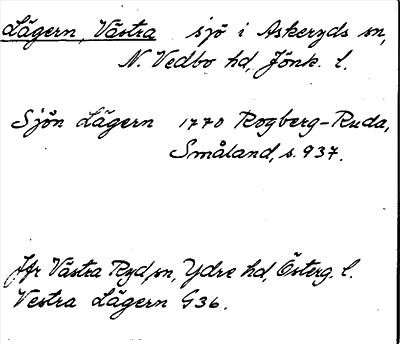 Lägern, Västra sjö i Askeryds sn,
N. Vedbo hd, Jönk. l.
Sjön Lägern 1770 Rogberg-Ruda,
Småland, s. 937.
Jfr Västra Ryd sn, Ydre hd, Österg. l.
Vestra Lägern G36.